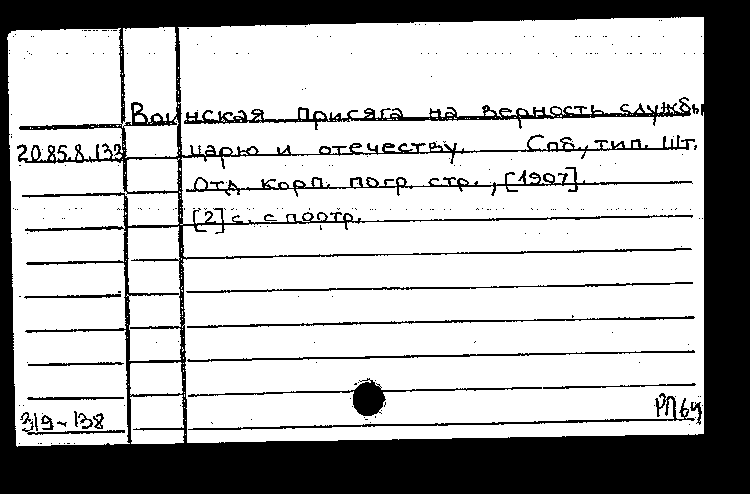 Воинская присяга на верность службы
20.85.8.133 царю и отечеству. Спб., тип. Шт.
Отд. корп. погр. стр., [1907].
[2] с. с портр.
319-138
РП64